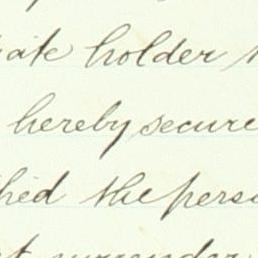 holder
hereby secure
the perso
surrender